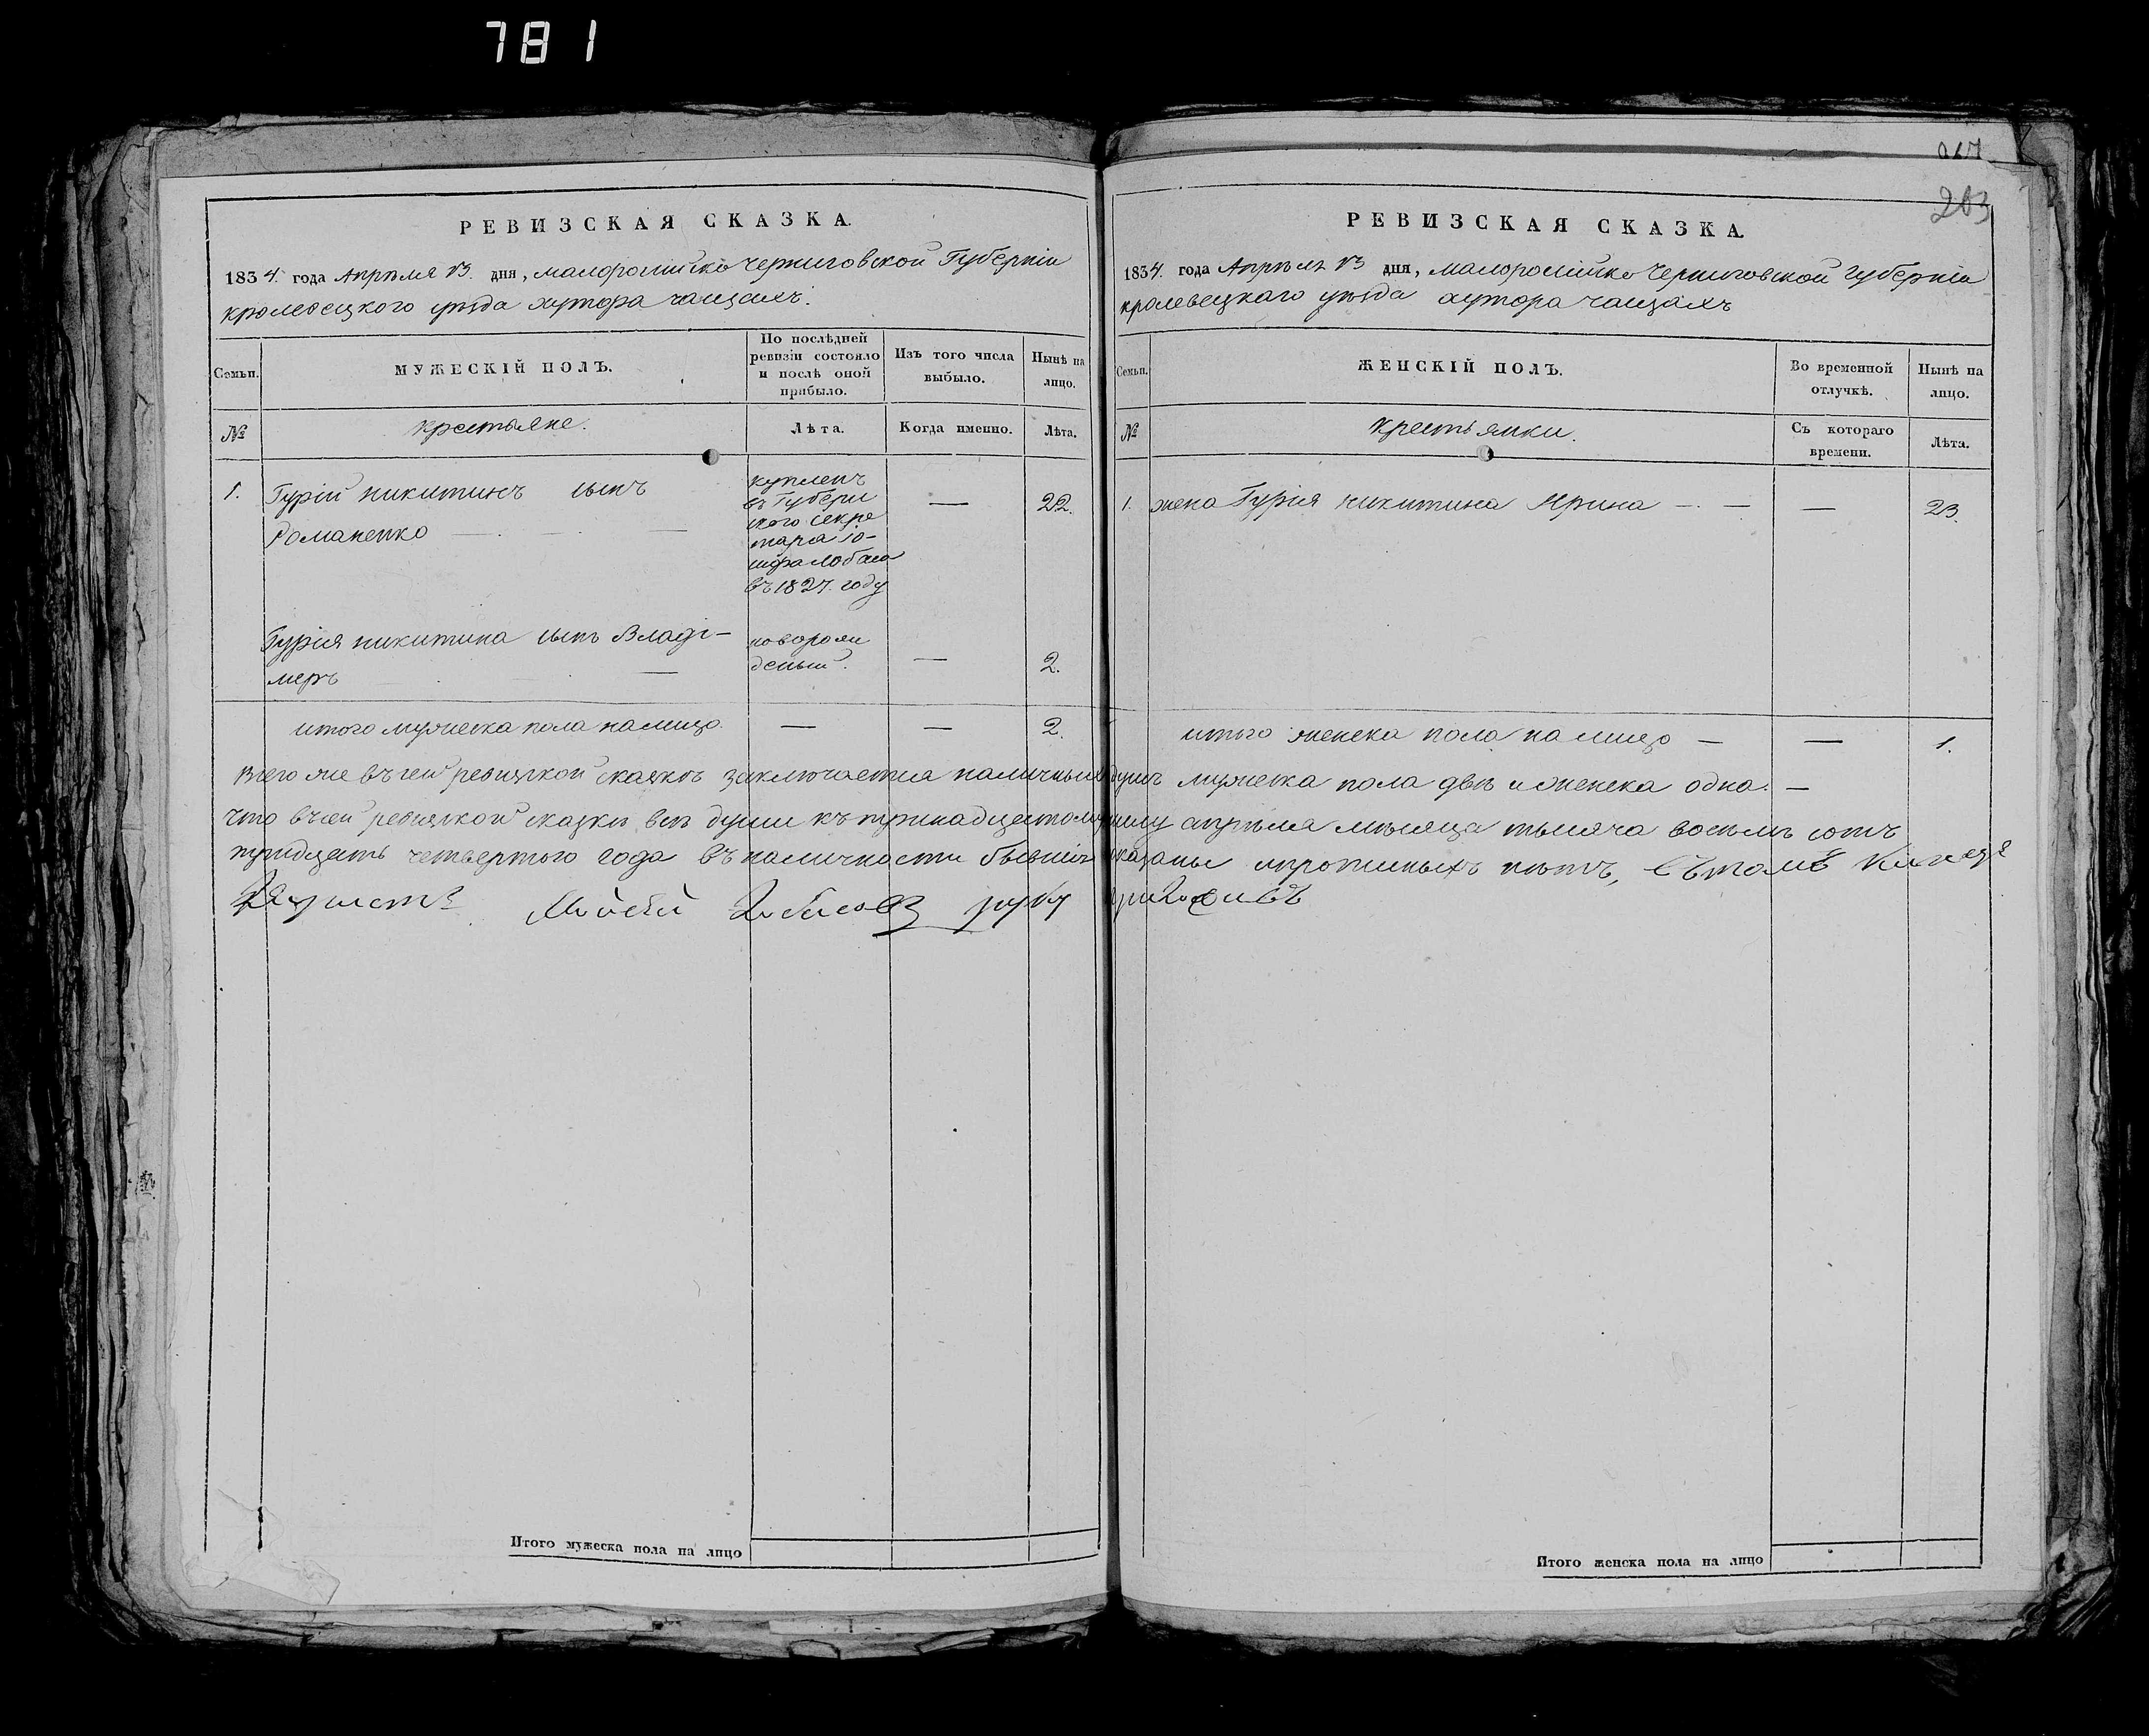 781
203
РЕВИЗСКАЯ СКАЗКА.
1834. года Апрѣля 13. дня, малоросійско Черниговской Губерніи
кролевецкого уѣзда хутора чащахъ.
Семьи.
МУЖЕСКІЙ ПОЛЪ.
По послѣдней
ревизіи состояло
и послѣ оной
прибыло.
Изъ того числа
выбыло.
Нынѣ на
лицо.
№
крестьяне.
Лѣта.
Когда именно.
Лѣта.
1. Гурій никитинъ сынъ
Романенко
купленъ
въ Губерн
ского Секре
тара
въ 1827. году
— 22.
Гурія никитина сынъ Владі-
меръ
новорож
деный.
— 2.
итого мужеска пола налицо. — — 2.
РЕВИЗСКАЯ СКАЗКА.
1834. года Апрѣля 13 дня, малоросійско Черниговской Губерніи
кролевецкаго уѣзда хутора чащахъ
Семьи.
ЖЕНСКІЙ ПОЛЪ.
Во временной
отлучкѣ.
Нынѣ на
лицо.
№
Крестьянки.
Съ котораго
времени.
Лѣта.
1. жена Гурія никитина Ирина — — — 23.
итого женска пола на лицо — — 1.
Всего же въ сей ревизской сказкѣ заключается наличныхъ душъ мужеска пола двѣ и женска одна. —
что в сей ревизской сказки всѣ души къ тринадцатому числу апрѣля мѣсяца тысяча восемъ сотъ
тридцать четвертого года въ наличности бывшіе показаны и прописныхъ нѣтъ, Въ томъ
Мойсей руку приложивъ
Итого мужеска пола на лицо
Итого женска пола на лицо